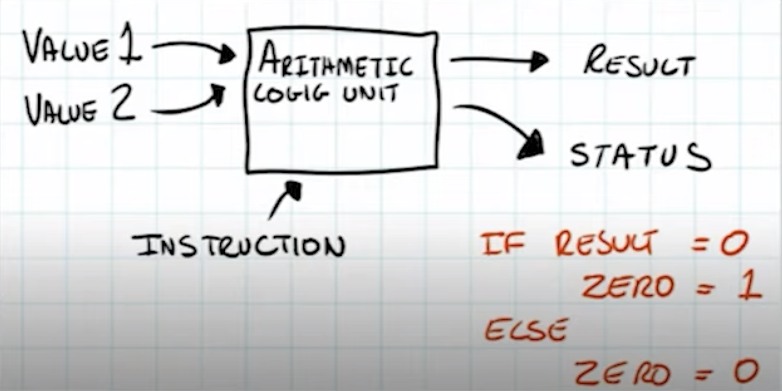 VALUE 1
VALUE 2
ARITHMETIC
LOGIG UNIT
RESULT
STATUS
INSTRUCTION
IF RESULT = 0
ZERO = 1
ELSE
ZERO = 0